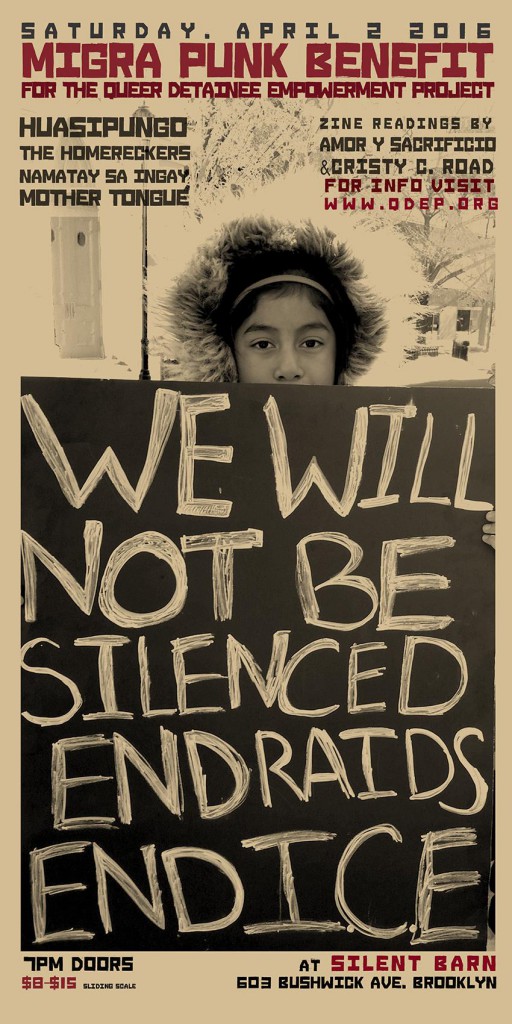 SATURDAY, APRIL 2 2016
MIGRA PUNK BENEFIT
FOR THE QUEER DETAINEE EMPOWERMENT PROJECT
HUASIPUNGO
THE HOMERECKERS
NAMATAY SA INGAY
MOTHER TONGUE
ZINE READINGS BY
AMOR Y SACRIFICIO
&CRISTY C. ROAD
FOR INFO VISIT
WWW.QDEP.ORG
WE WILL
NOT BE
SILENCED
END RAIDS
END I.C.E
7PM DOORS
$8-$15 SLIDING SCALE
AT SILENT BARN
603 BUSHWICK AVE. BROOKLYN